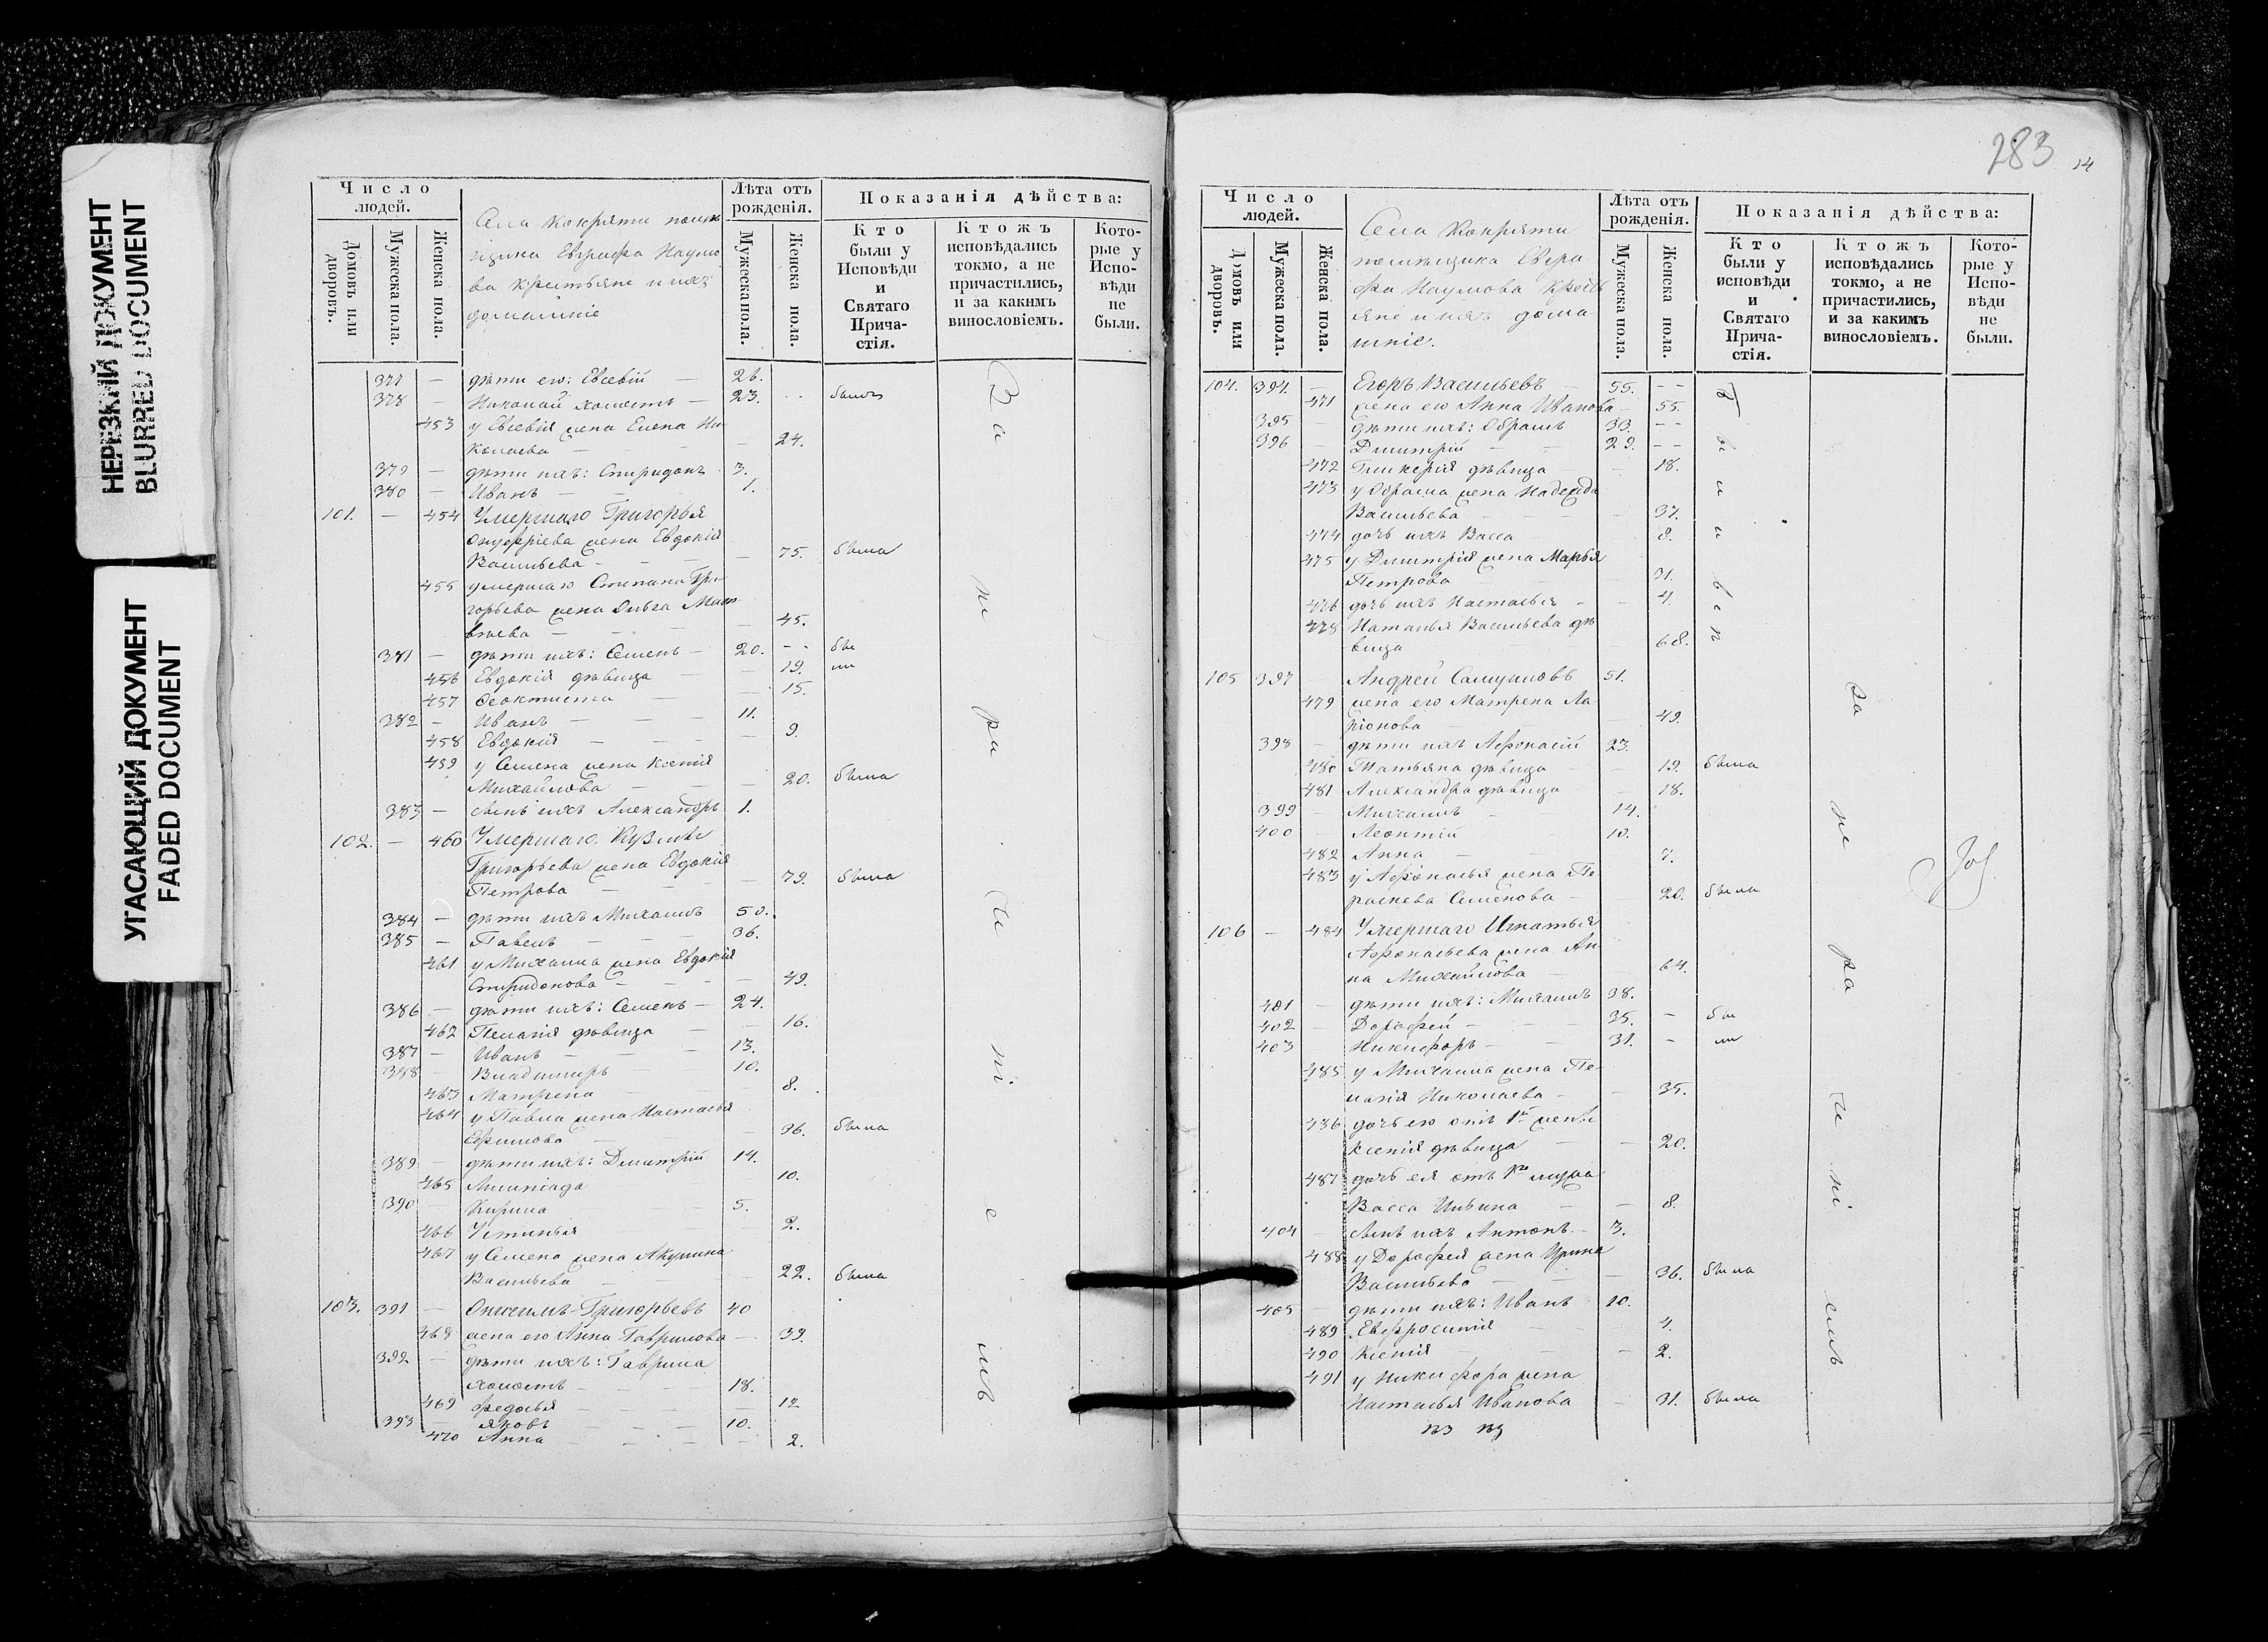 НЕРЕЗКИЙ ДОКУМЕНТ
BLURRED DOCUMENT
УГАСАЮЩИЙ ДОКУМЕНТ
FADED DOCUMENT
Число людей.
Домовъ или дворовъ.
Мужеска пола.
Женска пола.
Села Кокряти помѣ
щика Евграфа Наумо
ва крестьяне и ихъ
домашніе
Лѣта отъ рожденія.
Мужеска пола.
Женска пола.
Показанія дѣйства:
Кто были у Исповѣди и Святаго Прича-стія.
Ктожъ исповѣдались токмо, а не причастились, и за какимъ винословіемъ.
Кото-рые у Испо-вѣди не были.
377 — дѣти его: Евсевій — 26.
378 — Николай холостъ — 23. - - былъ
453 у Евсевія жена Елена Ни
колаева — — 24.
379 — дѣти ихъ: Спиридонъ 3.
380 — Иванъ — 1.
101. — 454 Умершаго Григорья
Онуфріева жена Евдокія
Васильева — — 75. была
455 умершаго Степана Гри-
горьева жена Ольга Мат
вѣева — — — 45.
381 — дѣти ихъ: Семенъ — 20. - - бы
456 Евдокія дѣвица — 19. ли
457 Феоктиста — 15.
382 — Иванъ — — — 11.
458 Евдокія — — — 9.
459 у Семена жена Ксенія
Михайлова — — 20. была
383 — сынъ ихъ Александръ 1.
102. — 460 Умершаго Кузмы
Григорьева жена Евдокія
Петрова — — — 79. была
384 — дѣти ихъ Михаилъ 50.
385 — Павелъ — — — 36.
461 у Михаила жена Евдокія
Спиридонова — — — 49.
386 — дѣти ихъ: Семенъ — 24.
462 Пелагія дѣвица — — 16.
387 — Иванъ — — — 13.
388 — Владимиръ — 10.
463 Матрена — 8.
464 у Павла жена Настасья
Ефимова — — 36. была
389 — дѣти ихъ: Дмитрій 14.
465 Олимпіада 10.
390 — Кирила — 5.
466 Устинья 2.
467 у Семена жена Акулина
Васильева — — 22. была
103. 391 — Онисимъ Григорьевъ 40
468 жена его Анна Гаврилова — 39.
392 — дѣти ихъ: Гаврила
холостъ — — — 18.
469 Федосья — — — 12
393 — Яковъ — — — 10.
470 Анна — — — 2.
За не ра че ні е мъ
283
14
Число людей.
Домовъ или дворовъ.
Мужеска пола.
Женска пола.
Села Кокряти
помѣщика Евгра
фа Наумова кресть
яне и ихъ дома
шніе.
Лѣта отъ рожденія.
Мужеска пола.
Женска пола.
Показанія дѣйства:
Кто были у исповѣди и Святаго Прича-стія.
Ктожъ исповѣдались токмо, а не причастились, и за какимъ винословіемъ.
Кото-рые у Испо-вѣди не были.
104. 394. — Егоръ Васильевъ — 55. - -
471 жена его Анна Иванова — 55.
395 — дѣти ихъ: Абрамъ 33. - -
396 — Дмитрій — — 29. - -
472 Гликерія дѣвица — — 18.
473 у Абрама жена Надежда
Васильева — — — 37.
474 дочь ихъ Васса — — 8.
475 у Дмитрія жена Марья
Петрова — 31.
476 дочь ихъ Настасья — — 4.
478 Наталья Васильева дѣ
вица — — 68.
105 397 — Андрей Самуиловъ 51.
479 жена его Матрена Ла
ріонова — 49.
398 — дѣти ихъ Афонасій 23.
480 Татьяна дѣвица — — 19. была
481 Александра дѣвица — 18.
399 — Михаилъ — — 14.
400 Леонтій — 10.
482 Анна — — — 7.
483 у Афонасья жена Пе-
раскева Семенова — — 20. была
106 — 484 Умершаго Игнатья
Афонасьева жена Ан-
на Михайлова — — 64.
401 — дѣти ихъ: Михаилъ 38.
402 Дорофей — — — 35. — бы
403 Никифоръ — — 31. — ли
485 у Михаила жена Пе-
лагія Николаева — — 35.
486 дочь его отъ 1й жены
Ксенія дѣвица — — 20.
487 дочь ея отъ 1го мужа
Васса — — 8.
404 — сынъ ихъ Антонъ — 3.
488 у Дорофея жена Ирина
Васильева — — 36. была
405 — дѣти ихъ: Иванъ 10.
489 Евфросинія — 4.
490 Ксенія — — 2.
491 у Никифора жена
Настасья Иванова — 31. была
за не ра че ні емъ